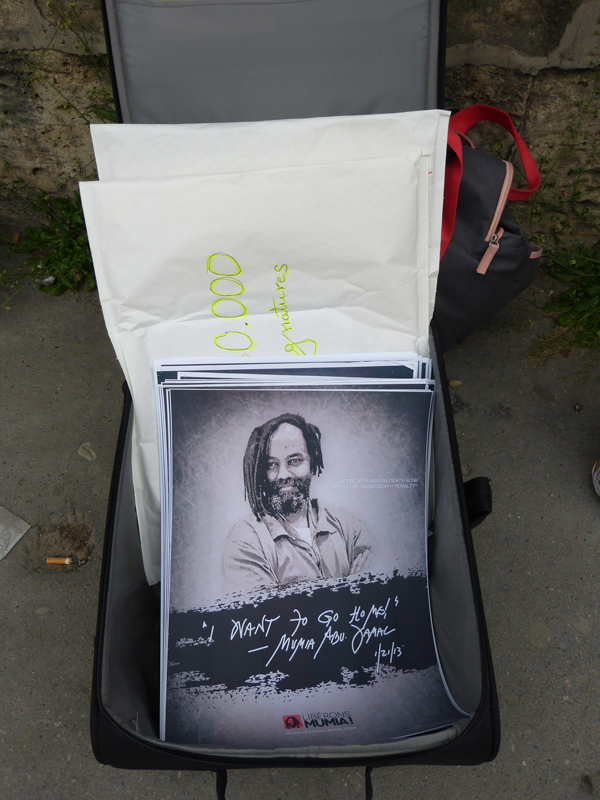 0.000
gnatures
"AFTER 30 YEARS ON DEATH ROW
"SLOW DEATH PENALTY"
"I WANT TO GO HOME!"
— MUMIA ABU-JAMAL
1/21/13
LIBÉRONS
MUMIA!